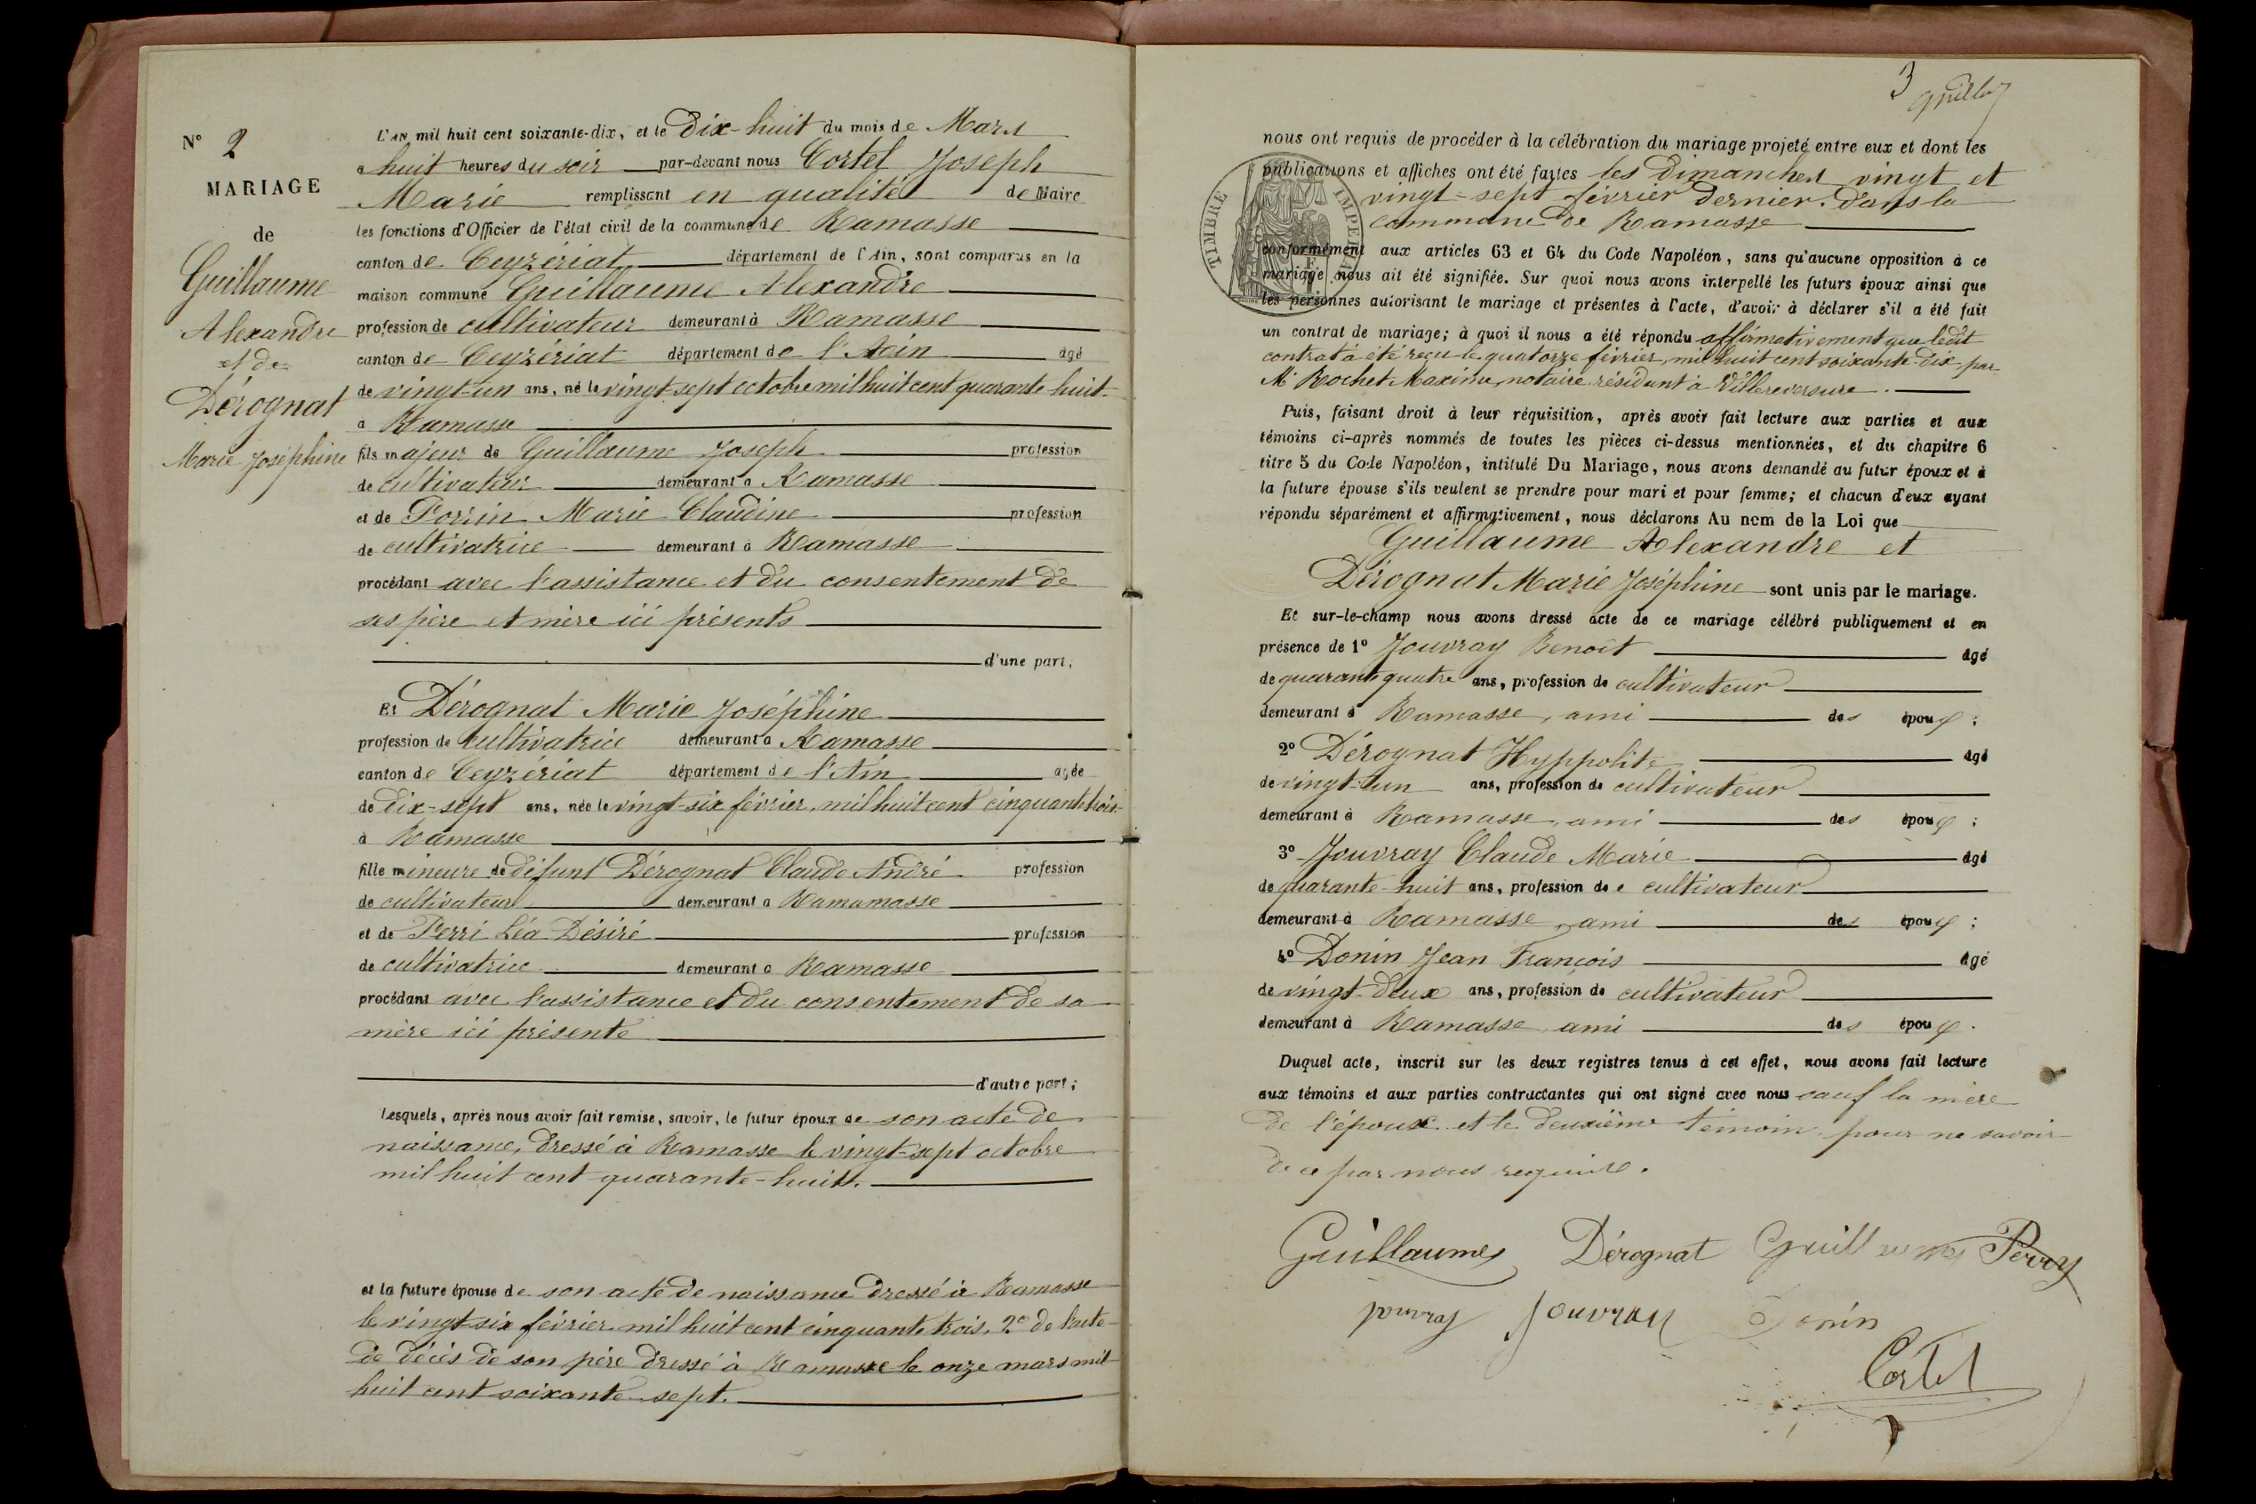 N° 2
MARIAGE
de
Guillaume
Alexandre
et de
Dérognat
Marie Joséphine
L'AN mil huit cent soixante-dix, et le Dix-huit du mois de Mars
a huit heures du soir par-devant nous Cortel Joseph
Marie remplissant en qualité de Maire
les fonctions d'Officier de l'état civil de la commune de Ramasse
canton de Ceyzériat département de l'Ain, sont comparus en la
maison commune Guillaume Alexandre
profession de cultivateur demeurant à Ramasse
canton de Ceyzériat département de l'Ain âgé
de vingt-un ans, né le vingt-sept octobre mil huit cent quarante huit
a Ramasse
fils majeur de Guillaume Joseph profession
de cultivateur demeurant a Ramasse
et de Marie Claudine profession
de cultivatrice demeurant à Ramasse
procédant avec l'assistance et du consentement de
ses père et mère ici présents
d'une part;
Et Dérognat Marie Joséphine
profession de cultivatrice demeurant a Ramasse
canton de Ceyzériat département de l'Ain agée
de dix-sept ans, née le vingt-six février mil huit cent cinquante trois
à Ramasse
fille mineure de défunt Dérognat Claude André profession
de cultivateur demeurant a Ramamasse
et de Ferri Léa Désiré profession
de cultivatrice demeurant a Ramasse
procédant avec l'assistance et du consentement de sa
mère ici présente
d'autre part;
Lesquels, après nous avoir fait remise, savoir, le futur époux de son acte de
naissance, dressé à Ramasse le vingt-sept octobre
mil huit cent quarante-huit.
et la future épouse de son acte de naissance dressé à Ramasse
le vingt-six février mil huit cent cinquante trois, 2° de l'acte
de décès de son père dressé à Ramasse le onze mars mil
huit cent soixante-sept.
3
nous ont requis de procéder à la célébration du mariage projeté entre eux et dont les
publications et affiches ont été faites les Dimanches vingt et
vingt-sept février dernier dans la
commune de Ramasse
TIMBRE IMPERIAL
conformément aux articles 63 et 64 du Code Napoléon, sans qu'aucune opposition à ce
mariage nous ait été signifiée. Sur quoi nous avons interpellé les futurs époux ainsi que
les personnes autorisant le mariage et présentes à l'acte, d'avoir à déclarer s'il a été fait
un contrat de mariage; à quoi il nous a été répondu affirmativement que ledit
contrat a été reçu le quatorze février, mil huit cent soixante-dix par
M. Rochet Maxime, notaire résidant à Villereversure.
Puis, faisant droit à leur réquisition, après avoir fait lecture aux parties et aux
témoins ci-après nommés de toutes les pièces ci-dessus mentionnées, et du chapitre 6
titre 5 du Code Napoléon, intitulé Du Mariage, nous avons demandé au futur époux et à
la future épouse s'ils veulent se prendre pour mari et pour femme; et chacun d'eux ayant
répondu séparément et affirmativement, nous déclarons Au nom de la Loi que
Guillaume Alexandre et
Dérognat Marie Joséphine sont unis par le mariage.
Et sur-le-champ nous avons dressé acte de ce mariage célébré publiquement et en
présence de 1° Jouvray Benoît âgé
de quarante quatre ans, profession de cultivateur
demeurant à Ramasse, ami des époux;
2° Dérognat Hyppolite âgé
de vingt-un ans, profession de cultivateur
demeurant à Ramasse, ami des époux;
3° Jouvray Claude Marie âgé
de quarante-huit ans, profession de cultivateur
demeurant à Ramasse, ami des époux;
4° Donin Jean François âgé
de vingt-deux ans, profession de cultivateur
demeurant à Ramasse ami des époux.
Duquel acte, inscrit sur les deux registres tenus à cet effet, nous avons fait lecture
aux témoins et aux parties contractantes qui ont signé avec nous sauf la mère
de l'époux et le deuxième témoin pour ne savoir
de ce par nous requis.
Guillaume Dérognat Guillaume
jouvray Jouvray Donin
Cortel